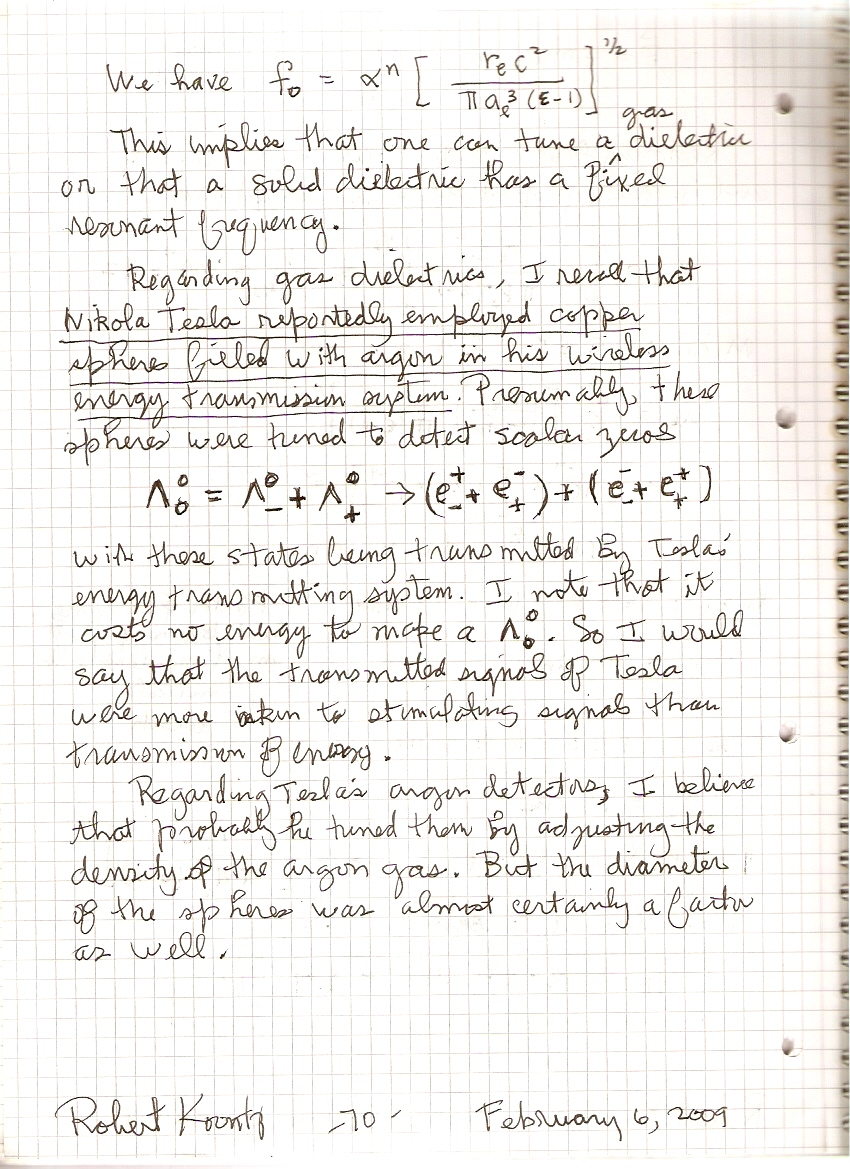 We have f₀ = αⁿ [ rₑc² / πaₑ³(ε-1) ]^1/2
gas
This implies that one can tune a ^ dielectric
or that a solid dielectric has a fixed
resonant frequency.
Regarding gas dielectrics, I recall that
Nikola Tesla reportedly employed copper
spheres filled with argon in his wireless
energy transmission system. Presumably, these
spheres were tuned to detect scalar zeros
Λ₀⁰ = Λ₋⁰ + Λ₊⁰ → (e₋⁺ + e₊⁻) + (e₋⁻ + e₊⁺)
with these states being transmitted By Tesla's
energy transmitting system. I note that it
costs no energy to make a Λ₀⁰. So I would
say that the transmitted signals of Tesla
were more akin to stimulating signals than
transmission of energy.
Regarding Tesla's argon detectors, I believe
that probably he tuned them by adjusting the
density of the argon gas. But the diameter
of the spheres was almost certainly a factor
as well.
Robert Koontz -70- February 6, 2009